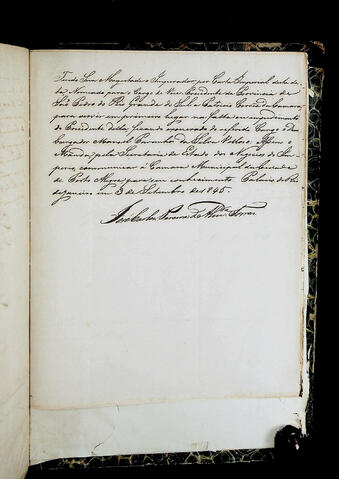 Tendo Sua Magestade o Imperador, por Carta Imperial desta da
ta Nomeado para o Cargo de Vice Presidente da Provincia de
São Pedro do Rio Grande do Sul a Patricio Corrêa da Camara
para servir em primeiro lugar na falta, ou impedimento
do Presidente della, ficando exonerado do referido Cargo o De
zembargador Manoel Paranhos da Silva Vellozo: Assim o
Manda, pela Secretaria de Estado dos Negocios do Im
perio, communicar á Camara Municipal da Cidade
de Porto Alegre, para seu conhecimento. Palacio do Rio
de Janeiro em 3 de Setembro de 1845.
José Carlos Pereira d'Alm.da Torres